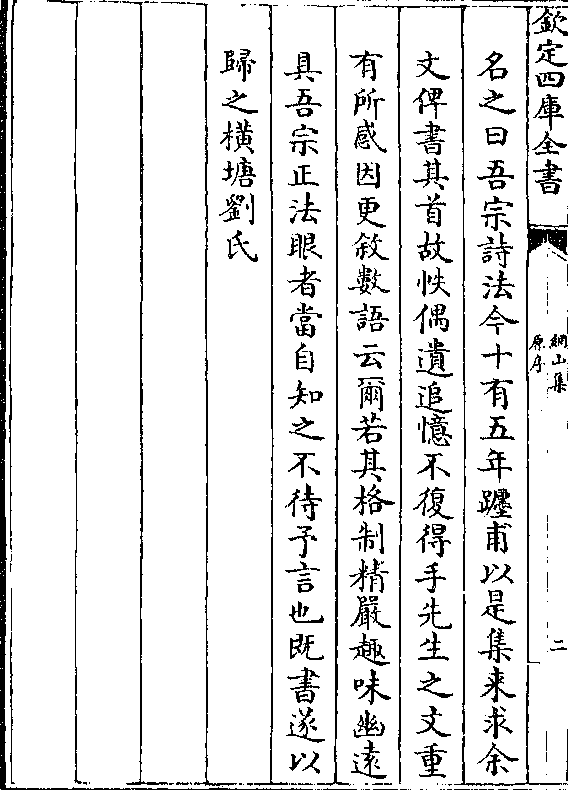 欽定四庫全書
網山集
原序
二
名之曰吾宗詩法今十有五年躔甫以是集来求余
文俾書其首故帙偶遺追憶不復得手先生之文重
有所感因更敘數語云爾若其格制精嚴趣味幽遠
具吾宗正法眼者當自知之不待予言也既書遂以
歸之橫塘劉氏